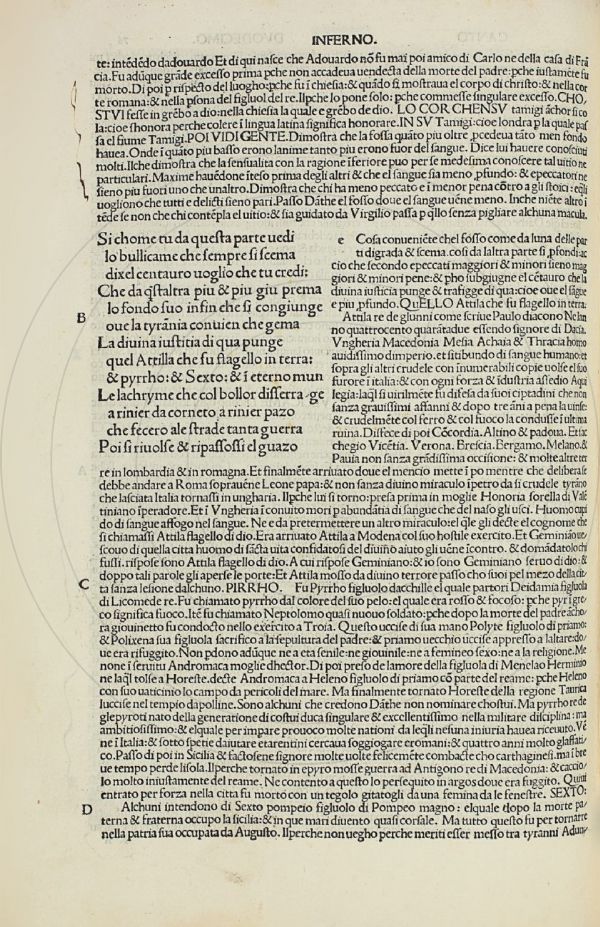 INFERNO.
te: intēdēdo dadouardo Et di qui nasce che Adouardo nō fu mai poi amico di Carlo ne della casa di Frā
cia. Fu adūque grāde excesso prima pche non accadeua uendecta della morte del padre: pche iustamēte fu
morto. Di poi p rispecto del luogho: pche fu ī chiesia: & quādo si mostraua el corpo di christo: & nella cor
te romana: & nella psona del figluol del re. Ilpche lo pone solo: pche commesse singulare excesso. CHO,
STVI fesse in grēbo a dio: nella chiesia la quale e grēbo de dio. LO COR CHENSV tamigi āchor si co
la: cioe shonora perche colere ī lingua latina significa honorare. IN SV Tamigi: cioe londra p la quale pas
sa el fiume Tamigi. POI VIDI GENTE. Dimostra che la fossa quāto piu oltre pcedeua tāto men fondo
hauea. Onde ī quāto piu basso erono lanime tanto piu erono fuor del sangue. Dice lui hauere conosciuti
molti. Ilche dimostra che la sensualita con la ragione īferiore puo per se medesima conoscere tal uitio ne
particulari. Maxime hauēdone īteso prima degli altri & che el sangue sia meno pfundo: & epeccatori ne
sieno piu fuori uno che unaltro. Dimostra che chi ha meno peccato e ī menor pena cōtro a gli stoici: eqli
uogliono che tutti e delicti sieno pari. Passo Dāthe el fosso doue el sangue uēne meno. Inche niēte altro ī
tēde se non che chi contēpla el uitio: & sia guidato da Virgilio passa p qllo senza pigliare alchuna macula.
Si chome tu da questa parte uedi
lo bullicame che sempre si scema
dixel centauro uoglio che tu credi:
Che da qstaltra piu & piu giu prema
lo fondo suo infin che si congiunge
B
oue la tyrānia conuien che gema
La diuina iustitia di qua punge
quel Attilla che fu flagello in terra:
& pyrrho: & Sexto: & ī eterno mun
Le lachryme che col bollor disserra ge
a rinier da corneto a rinier pazo
che fecero ale strade tanta guerra
Poi si riuolse & ripassossi el guazo
e Cosa conueniēte chel fosso come da luna delle par
ti digrada & scema. cosi da laltra parte si pfondi: ac
cio che secondo epeccati maggiori & minori sieno mag
giori & minori pene: & pho subgiugne el cētauro che la
diuina iustitia punge & trafigge di qua: cioe oue el sāgue
e piu pfundo. QuELLO Attila che fu flagello in terra:
Attila re de glunni come scriue Paulo diacono Nelan
no quattrocento quarātadue essendo signore di Dacia.
Vngheria Macedonia Mesia Achaia & Thracia homo
auidissimo dimperio. et sitibundo di sangue humano: et
sopra gli altri crudele con īnumerabili copie uolse el suo
furore ī italia: & con ogni forza & īdustria assedio Aqui
legia: laql si uirilmēte fu difesa da suoi ciptadini che non
sanza grauissimi affanni & dopo tre āni a pena la uinse:
& crudelmēte col ferro & col fuoco la condusse ī ultima
ruina. Disfece di poi Cōcordia. Altino & padoua. Et sac
chegio Vicētia. Verona. Brescia. Bergamo. Melano. &
Pauia non sanza grādissima occisione: & molte altre ter
re in lombardia & in romagna. Et finalmēte arriuato doue el mencio mette ī po mentre che deliberasse
debbe andare a Roma soprauēne Leone papa: & non sanza diuino miraculo īpetro da si crudele tyrāno
che lasciata Italia tornassi in ungharia. Ilpche lui si torno: presa prima in moglie Honoria sorella di Valē
tiniano īperadore. Et ī Vngheria ī conuito mori p abundātia di sangue che del naso gli usci. Huomo cupi
do di sangue affogo nel sangue. Ne e da pretermettere un altro miraculo: el qle gli decte el cognome che
si chiamassi Attila flagello di dio. Era arriuato Attila a Modena col suo hostile exercito. Et Geminiāo ue
scouo di quella citta huomo di sācta uita confidatosi del diuīno aiuto gli uēne īcontro. & domādatolo chi
fussi. rispose sono Attila flagello di dio. A cui rispose Geminiano: & io sono Geminiano seruo di dio: &
doppo tali parole gli aperse le porte: Et Attila mosso da diuino terrore passo cho suoi pel mezo della cit
C
ta sanza lesione dalchuno. PIRRHO. Fu Pyrrho figluolo dacchille el quale partori Deidamia figluola
di Licomede re. Fu chiamato pyrrho dal colore del suo pelo: el quale era rosso & focoso: pche pyr ī gre
co significa fuoco. Itē fu chiamato Neptolomo quasi nuouo soldato: pche dopo la morte del padre ācho
ra giouinetto fu condocto nello exercito a Troia. Questo uccise di sua mano Polyte figluolo di priamo:
& Polixena sua figluola sacrifico a la sepultura del padre: & priamo uecchio uccise appresso a laltare: do
ue era rifuggito. Non pdono adūque ne a eta senile: ne giouinile: ne a femineo sexo: ne a la religione. Me
none ī seruitu Andromaca moglie dhector. Di poi preso de lamore della figluola di Menelao Herminio
ne laql tolse a Horeste. decte Andromaca a Heleno figluolo di priamo cō parte del reame: pche Heleno
con suo uaticinio lo campo da pericoli del mare. Ma finalmente tornato Horeste della regione Taurica
luccise nel tempio dapolline. Sono alchuni che credono Dāthe non nominare chostui. Ma pyrrho re de
gle pyroti nato della generatione di costui duca singulare & excellentissimo nella militare disciplina: ma
ambitiosissimo: & elquale per impare prouoco molte nationi da leqli nesiuna iniuria hauea riceuuto. Vē
ne ī Italia: & sotto spetie daiutare etarentini cercaua soggiogare eromani: & quattro anni molto glaffati
co. Passo di poi in Sicilia & factosene signore molte uolte felicemēte combacte cho carthaginesi. ma ī bre
ue tempo perde lisola. Ilperche tornato in epyro mosse guerra ad Antigono re di Macedonia: & caccio
lo molto iniustamente del reame. Ne contento a questo lo perseguito in argos doue era fuggito. Quiui
entrato per forza nella citta fu morto con un tegolo gittatogli da una femina da le fenestre. SEXTO:
D
Alchuni intendono di Sexto pompeio figluolo di Pompeo magno: elquale dopo la morte pa
terna & fraterna occupo la sicilia: & in que mari diuento quasi corsale. Ma tutto questo fu per tornare
nella patria sua occupata da Augusto. Ilperche non uegho perche meriti esser messo tra tyranni Adun